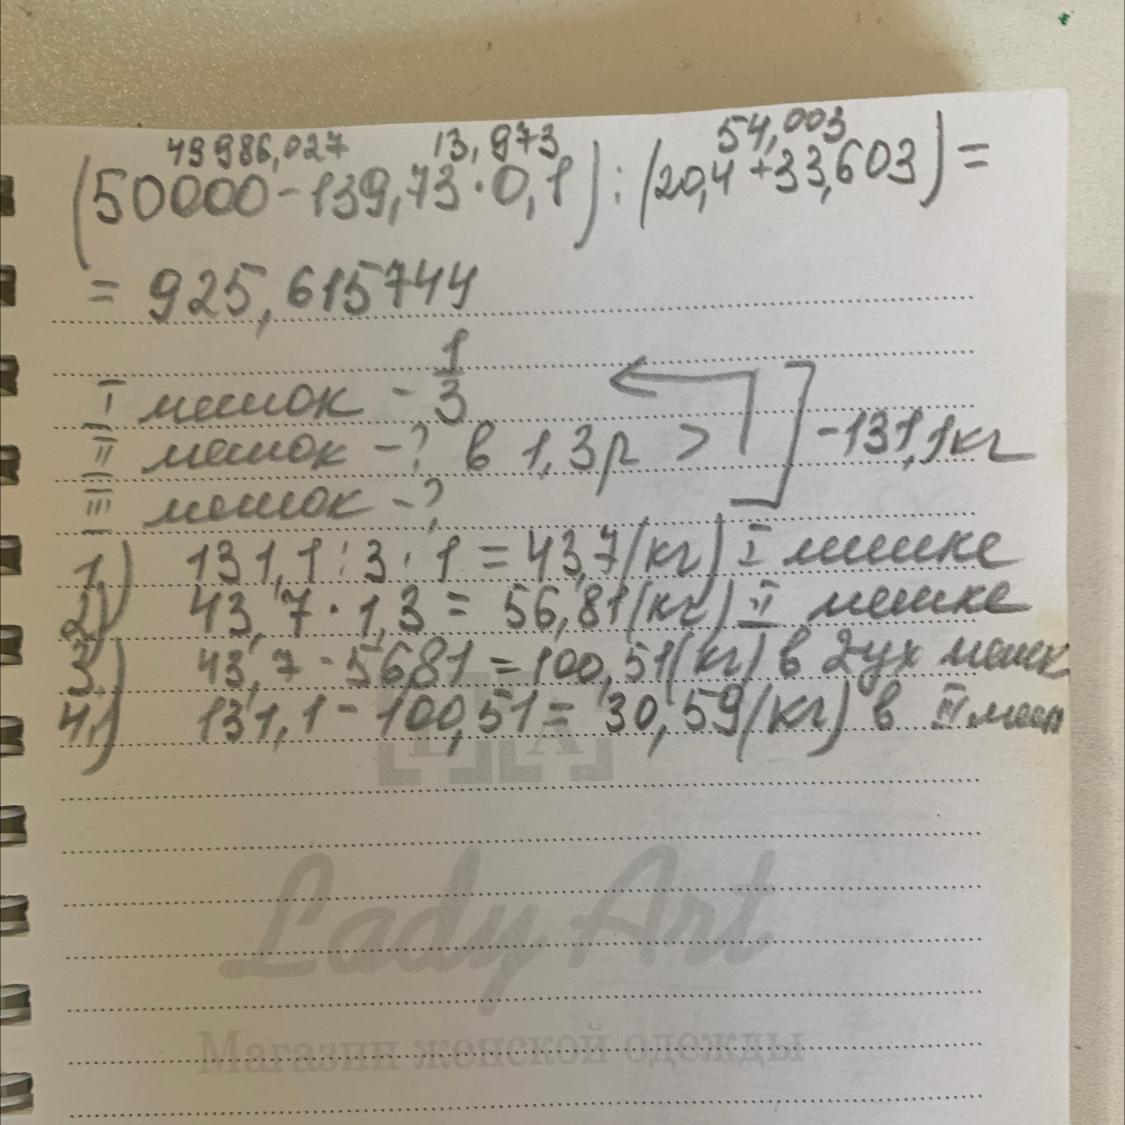 49986,027 13,973 54,003
(50000-139,73·0,1):(20,4+33,603)=
= 925,615744
I мешок - 1/3
II мешок -? в 1,3р >
-131,1кг
III мешок -?
1.) 131,1:3·1=43,7(кг) I мешке
2) 43,7·1,3= 56,81(кг) II мешке
3.) 43,7-56,81=100,51(кг) в 2ух мешк
4.) 131,1-100,51= 30,59(кг) в III меш
LA
Lady Art
Магазин женской одежды